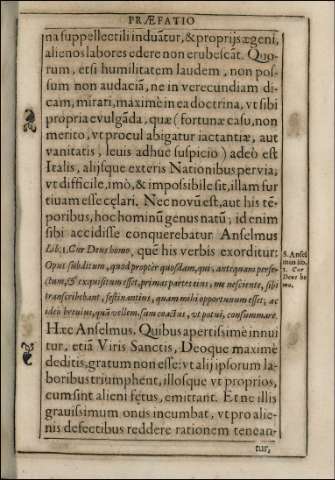 PRÆFATIO
na suppellectili induãtur, & proprijs ægeni,
alienos labores edere non erubescãt. Quo-
rum, etsi humilitatem laudem, non pos-
sum non audaciã, ne in verecundiam di-
cam, mirari, maximè in ea doctrina, vt sibi
propria evulgãda, quæ (fortunæ casu, non
merito, vt procul abigatur iactantiæ, aut
vanitatis, leuis adhuc suspicio) adeò est
Italis, alijsque exteris Nationibus pervia,
vt difficile, imò, & impossibile sit, illam fur
tiuam esse cęlari. Nec novũ est, aut his tẽ-
poribus, hoc hominũ genus natũ; id enim
sibi accidisse conquerebatur Anselmus
Lib: 1. Cur Deus homo, quẽ his verbis exorditur:
Opus subditum, quod propter quosdam, qui, antequam perfe-
ctum, & exquisitum esset, primas partes eius, me nesciente, sibi
transcribebant, festinantius, quam mihi opportunum esset, ac
ideò breuius, quã vellem, sum coactus, vt potui, consummare.
S. Ansel
mus lib.
1. Cur
Deus ho
mo.
Hæc Anselmus. Quibus apertissimè innui
tur, etiã Viris Sanctis, Deoque maximè
deditis, gratum non esse: vt alij ipsorum la-
boribus triumphent, illosque vt proprios,
cum sint alieni fętus, emittant. Et ne illis
grauissimum onus incumbat, vt pro alie-
nis defectibus reddere rationem tenean-
tur,